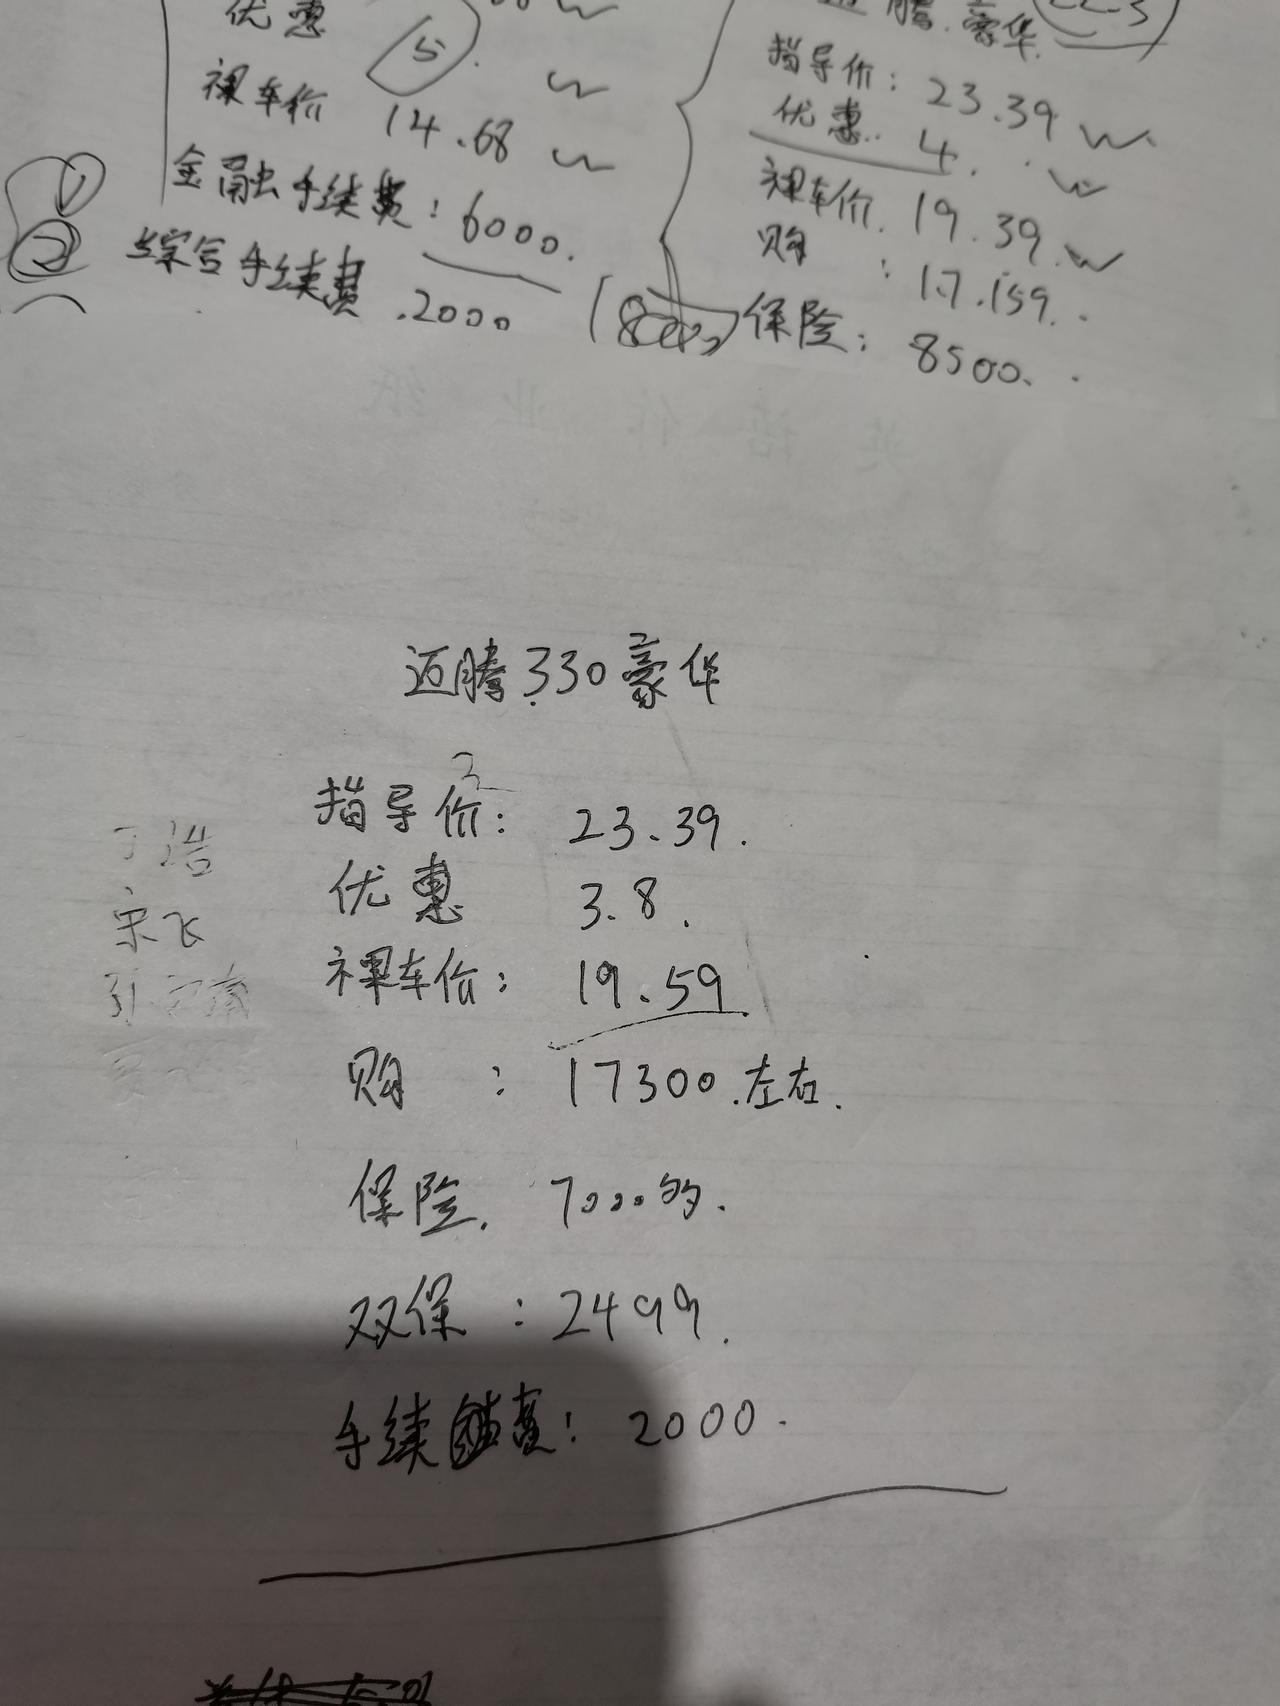 优惠 5.
裸车价 14.68 W
金融手续费: 6000.
② 综合手续费 .2000
腾.豪华.
指导价: 23.39 W
优惠. 4. W
裸车价. 19.39 W
购 : 17.159.
保险: 8500.
英语作业纸
迈腾330豪华
指导价: 23.39.
优惠 3.8.
裸车价: 19.59
购 : 17300.左右.
保险. 7000多.
双保 : 2499.
手续费: 2000.
丁浩
宋飞